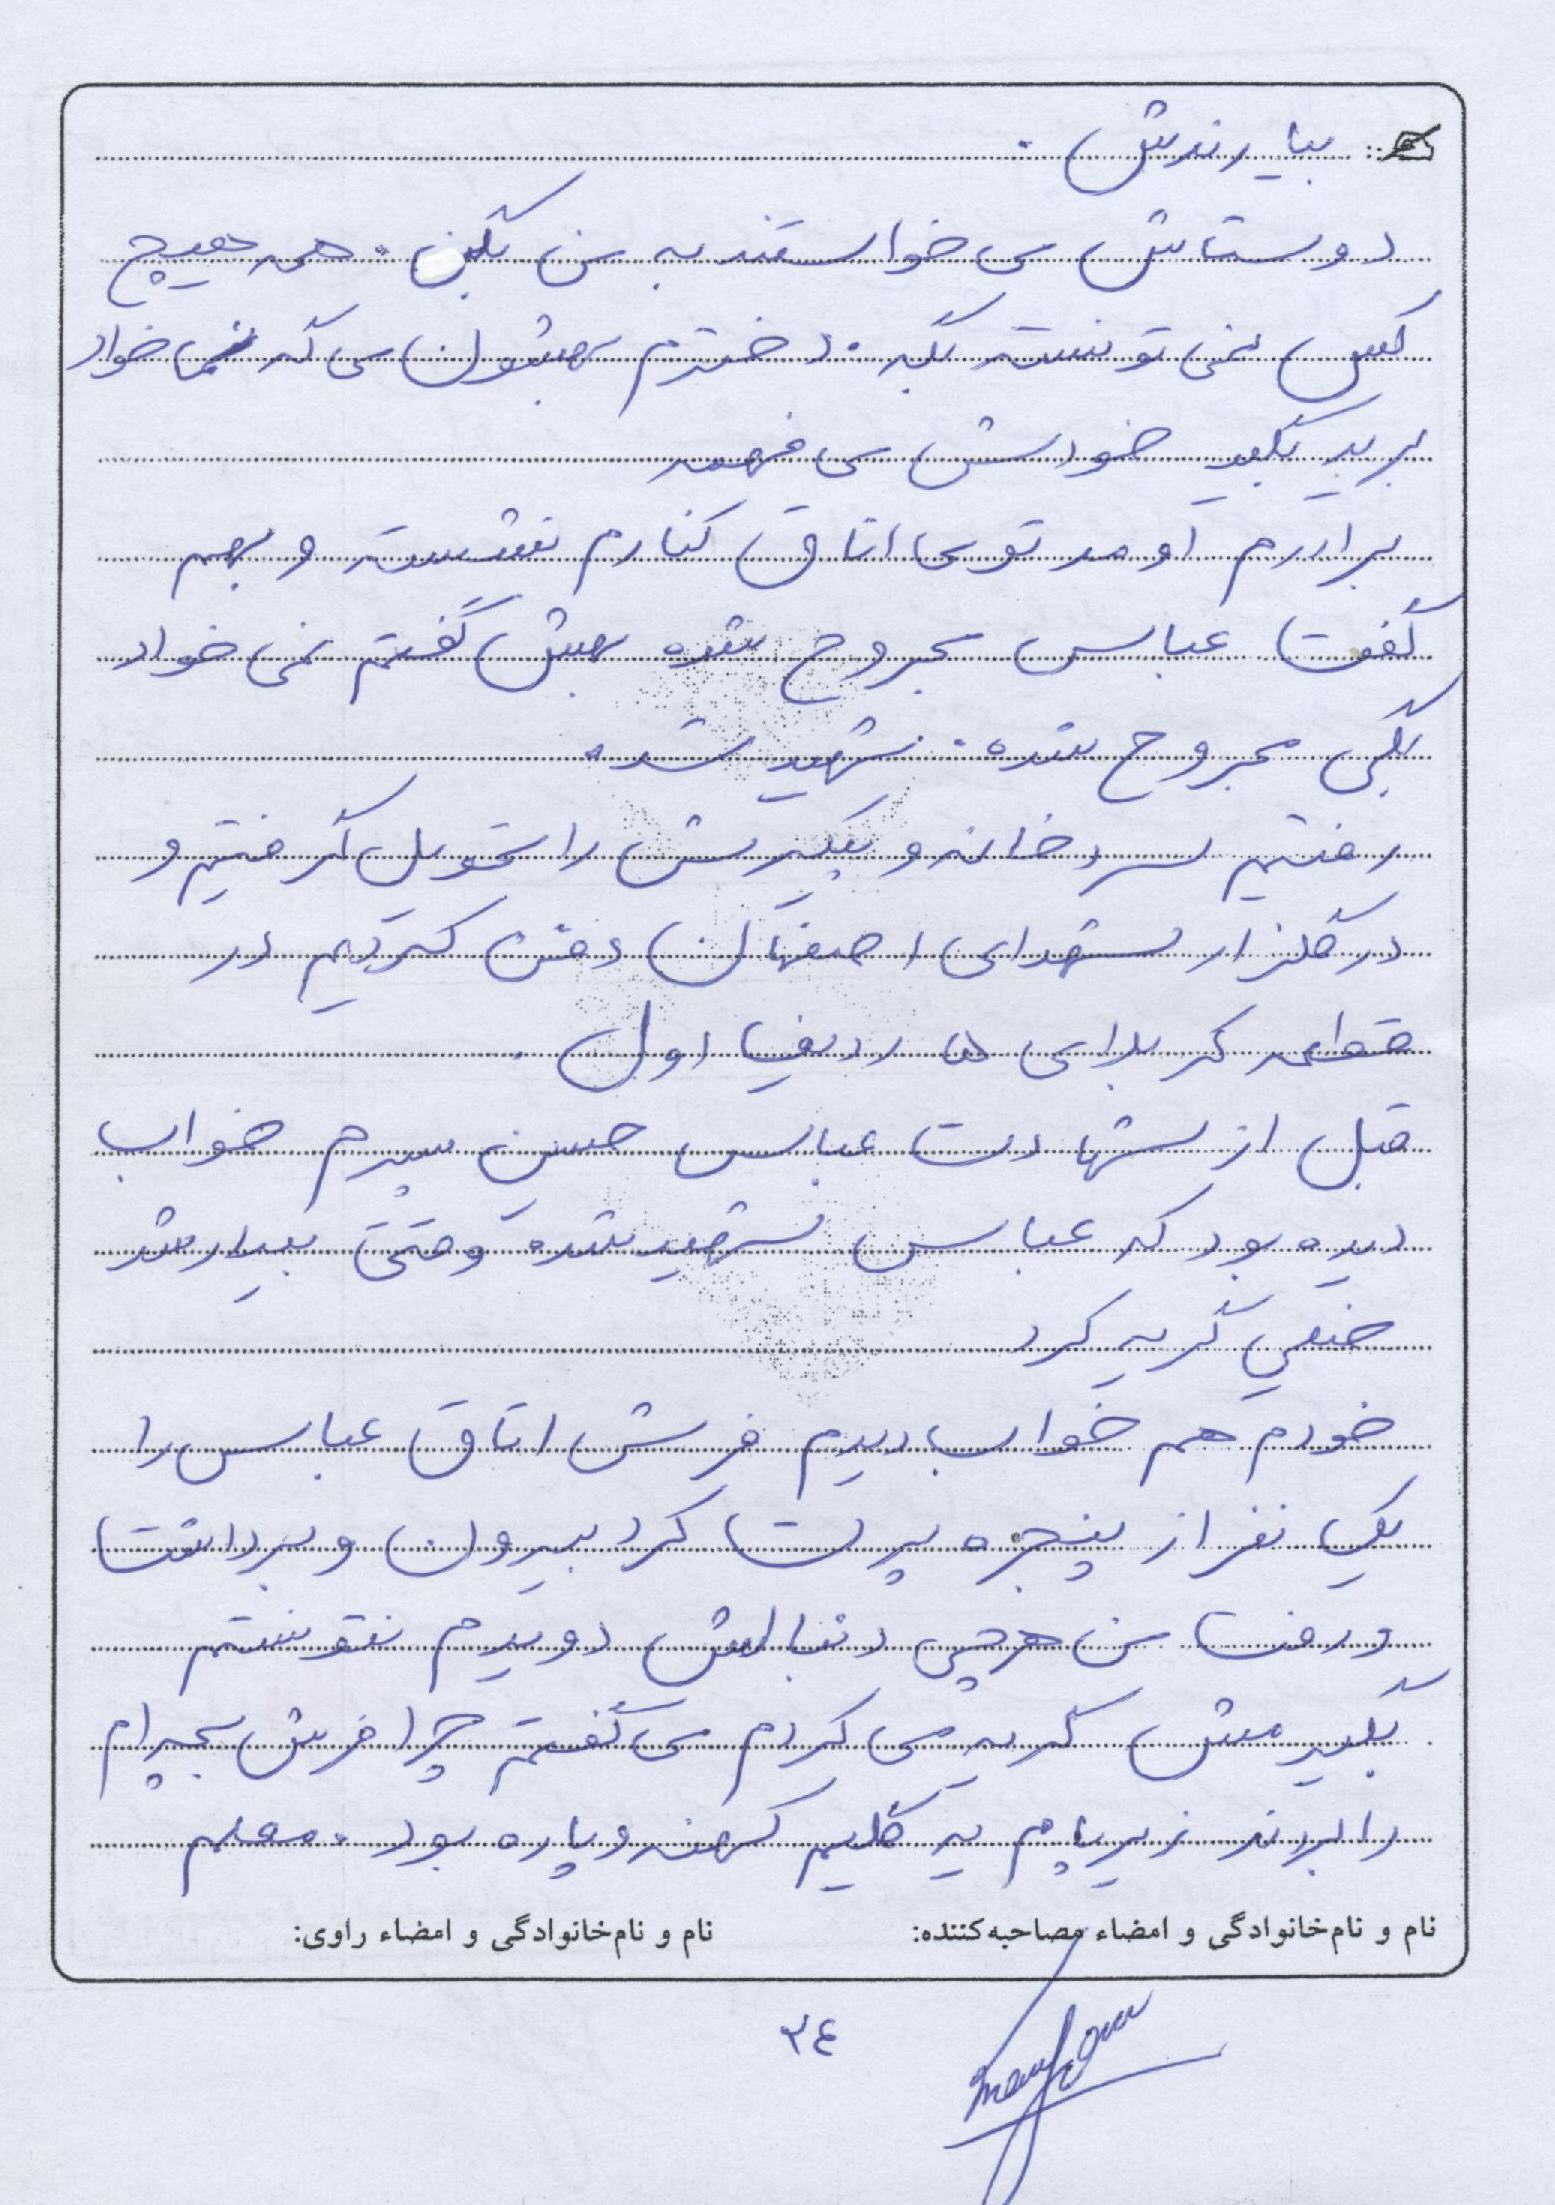 بیارندش.
دوستاش می خواستند به من بگن. همه هیچ
کس نمی تونسته بگه. دخترم بهشون می گه نمی خواد
برید بگید خودش می فهمه
برادرم اومد توی اتاق کنارم نشسته و بهم
گفت عباس مجروح شده بهش گفتم نمی خواد
بگی مجروح شده. شهید شده
رفتیم سردخانه و پیکرش را تحویل گرفتیم و
در گلزار شهدای اصفهان دفن کردیم در
قطعه کربلای ۵ ردیف اول.
قبل از شهادت عباس حسن پسرم خواب
دیده بود که عباس شهید شده وقتی بیدار شد
خیلی گریه کرد
خودم هم خواب دیدم فرش اتاق عباس را
یک نفر از پنجره پرت کرد بیرون و برداشت
و رفت من هر چی دنبالش دویدم نتونستم
بگیرمش گریه می کردم می گفتم چرا فرش بچه ام
را بردند زیر پام یه گلیم کهنه و پاره بود. معلم
نام و نام‌خانوادگی و امضاء مصاحبه‌کننده: نام و نام‌خانوادگی و امضاء راوی:
۳٤